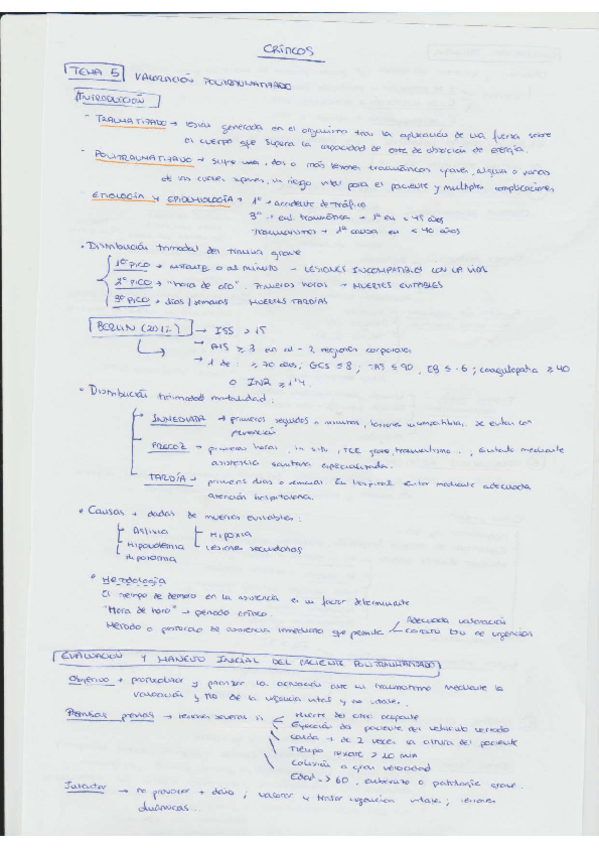 CRÍTICOS
TEMA 5 VALORACIÓN POLITRAUMATIZADO
INTRODUCCIÓN
- TRAUMATIZADO → lesión generada en el organismo tras la aplicación de una fuerza sobre
el cuerpo que supera la capacidad de este de absorción de energía.
- POLITRAUMATIZADO → Sufre una, dos o más lesiones traumáticas graves, alguna o varias
de las cuales supone, un riesgo vital para el paciente y múltiples complicaciones
ETIOLOGÍA Y EPIDEMIOLOGÍA → 1º → accidente de tráfico
3º → traumática → 1º en < 45 años
Traumatismos → 1ª causa en < 40 años
• Distribución trimodal del trauma grave
1º PICO → INSTANTE o al minuto - LESIONES INCOMPATIBLES CON LA VIDA
2º PICO → "hora de oro". Primeras horas → MUERTES EVITABLES
3º PICO → días/semanas MUERTES TARDÍAS
BERLIN (2012) → ISS > 15
→ AIS ≥ 3 en al - 2 regiones corporales
→ 1 de: ≥ 70 años; GCS ≤ 8; TAS ≤ 90, EB ≤ -6; coagulopatía ≥ 40
O INR ≥ 1'4
• Distribución trimodal mortalidad:
INMEDIATA → primeros segundos o minutos, lesiones incompatibles. Se evitan con
prevención
PRECOZ → primeras horas, in situ, TCE grave, traumatismo. evitado mediante
asistencia sanitaria especializada.
TARDÍA → primeros días o semanas. En hospital. Evitar mediante adecuada
atención hospitalaria.
• Causas + dadas de muertes evitables:
Asfixia Hipoxia
Hipovolemia Lesiones secundarias
• Metodología
El tiempo de demora en la asistencia es un factor determinante
"Hora de horo" → periodo crítico
Método o protocolo de asistencia inmediato que permite Adecuada valoración
EVALUACIÓN Y MANEJO INICIAL DEL PACIENTE POLITRAUMATIZADO
Objetivo → protocolizar y priorizar la actuación ante un traumatismo mediante la
valoración y de la urgencia vital y no vitales.
Premisas previas → lesiones severas si Muerte del otro ocupante
Eyección del paciente del vehículo cerrado
Caída + de 2 veces la altura del paciente
Tiempo rescate > 20 min
Colisión a gran velocidad
Edad > 60, embarazo o patología grave.
→ no provocar + daño; valorar y tratar urgencias vitales; lesiones
dinámicas...